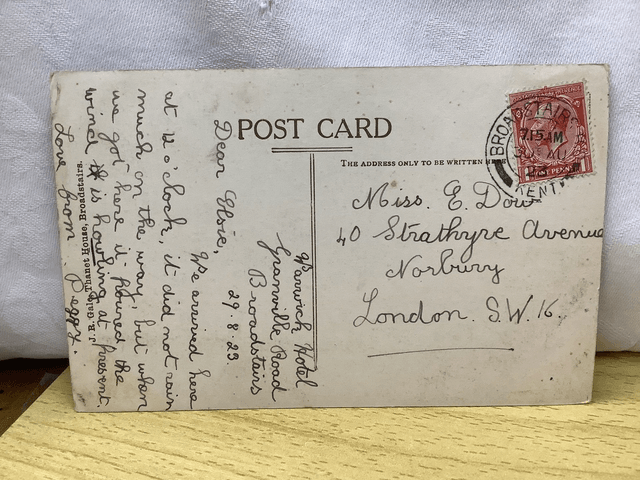 POST CARD
THE ADDRESS ONLY TO BE WRITTEN HERE
BROADSTAIRS
9.15 AM
KENT
Miss. E. Dow
40 Strathyre Avenue
Norbury
London. S.W. 16.
Warwick Hotel
Granville Road
Broadstairs
29.8.23.
Dear Elsie,
We arrived here
at 12 o'clock, it did not rain
much on the way, but when
we got here it poured. the
wind is howling at present.
Love from Peggy.
J. R. Gale, Thanet House, Broadstairs.